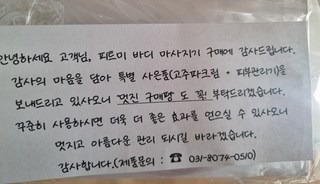 안녕하세요 고객님, 피르미 바디 마사지기 구매에 감사드립니다.
감사의 마음을 담아 특별 사은품(고주파크림 + 피부관리기)을
보내드리고 있사오니 멋진 구매평 도 꼭! 부탁드리겠습니다.
꾸준히 사용하시면 더욱 더 좋은 효과를 얻으실 수 있사오니
멋지고 아름다운 관리 되시길 바라겠습니다.
감사합니다.(제품문의 : ☎ 031-8074-0510)